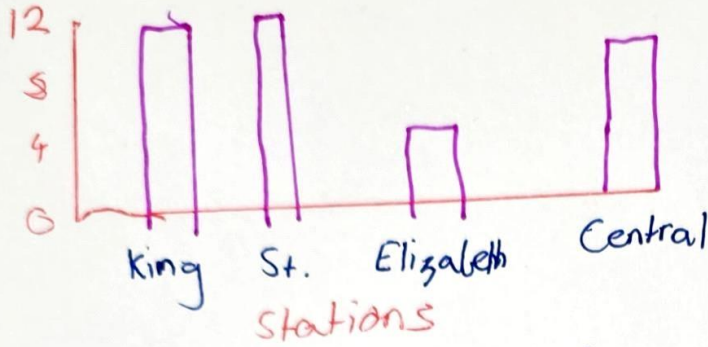 12
8
4
0
King St. Elizabeth Central
Stations